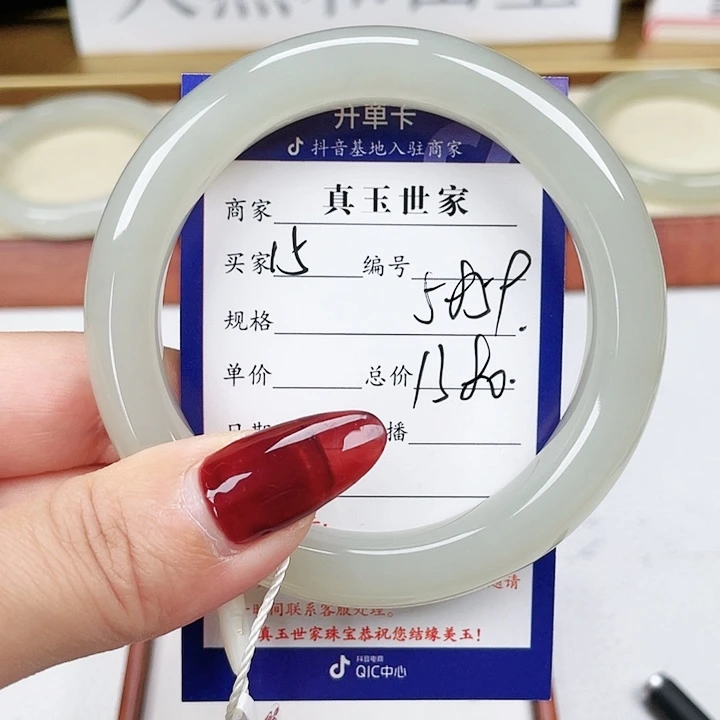 天然和田玉
开单卡
抖音基地入驻商家
商家 真玉世家
买家 15 编号
规格 5859.
单价 总价 1380.
日期 播
邀请
一时间联系客服处理。
真玉世家珠宝恭祝您结缘美玉!
抖音电商
QIC中心